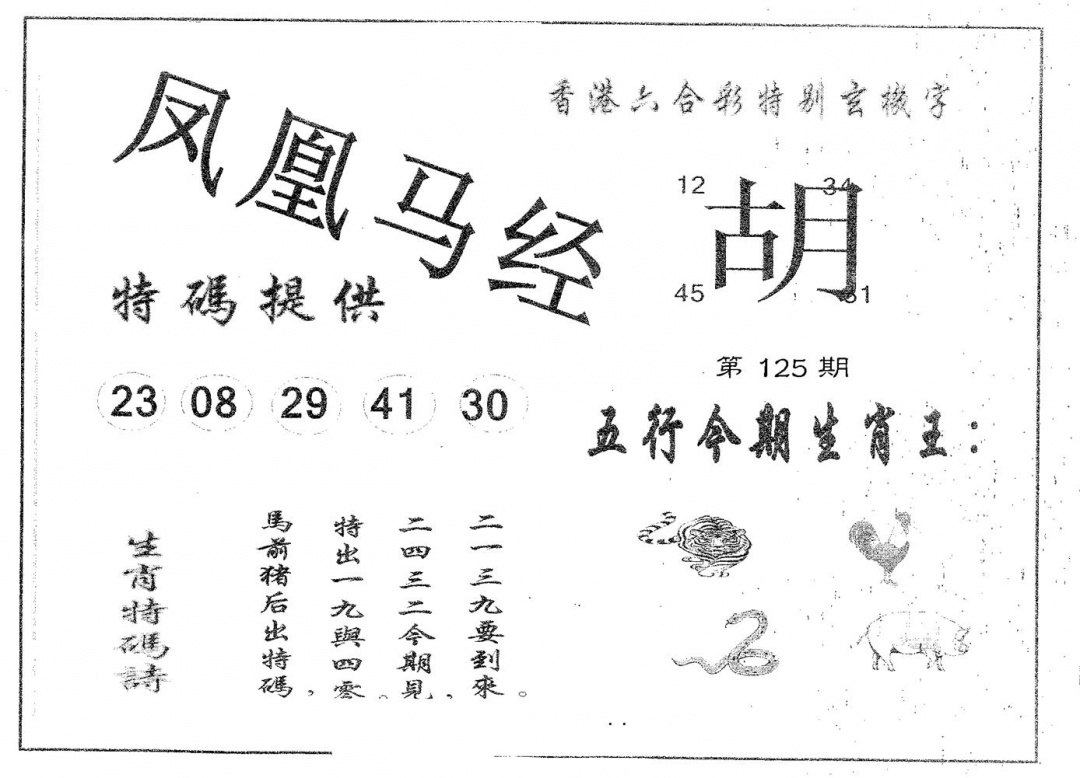 凤凰马经
香港六合彩特别玄機字
12 34
胡
45 31
特碼提供
第 125 期
23 08 29 41 30
五行今期生肖王：
生肖特碼詩
馬前猪后出特碼，
特出一九與四零。
二四三二今期見，
二一三九要到來。